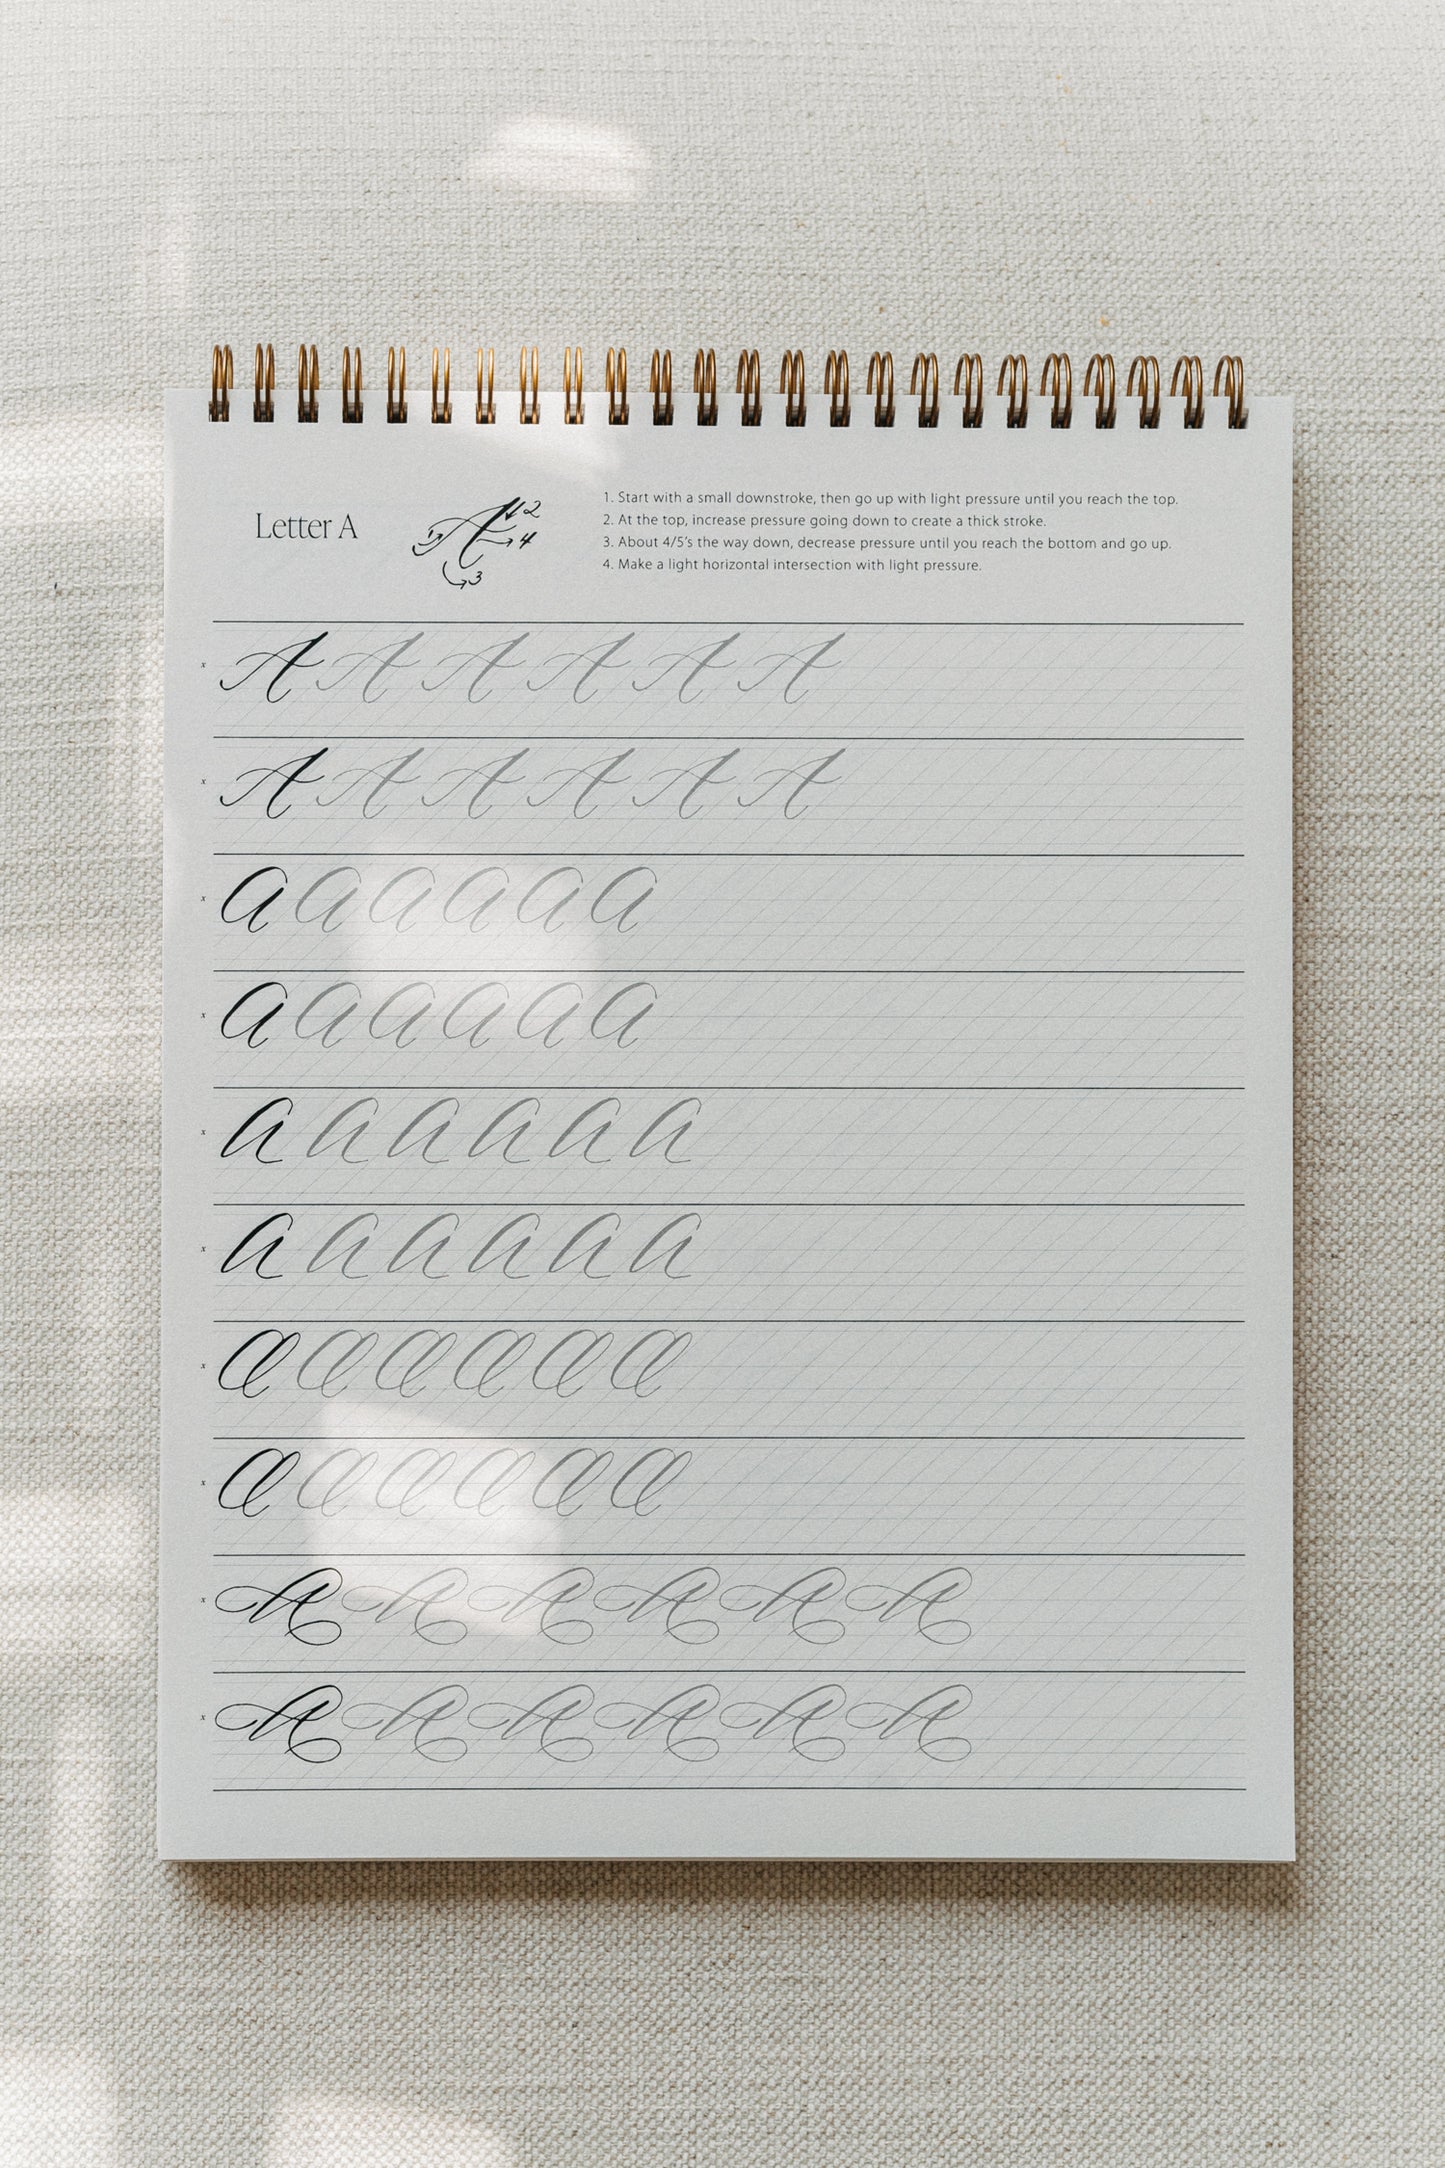 Letter A
1 2 3 4
1. Start with a small downstroke, then go up with light pressure until you reach the top.
2. At the top, increase pressure going down to create a thick stroke.
3. About 4/5's the way down, decrease pressure until you reach the bottom and go up.
4. Make a light horizontal intersection with light pressure.
x A A A A A A
x A A A A A A
x A A A A A A
x A A A A A A
x A A A A A A
x A A A A A A
x A A A A A A
x A A A A A A
x A A A A A A
x A A A A A A